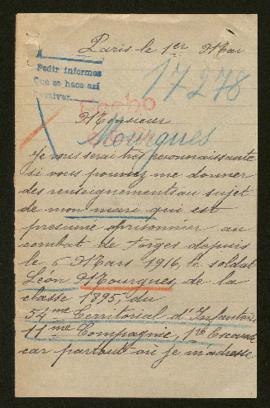 Paris le 1er Mai
A
Pedir informes
Que se hace así
17278
Monsieur
Mourgues
Je vous serai très reconnaissante
si vous pouviez me donner
des renseignements au sujet
de mon mari qui est
présumé prisonnier au
combat de Forges depuis
le 6 Mars 1916, le soldat
Léon Mourgues, de la
classe 1895, du
54me Territorial d'Infanterie,
11me Compagnie, 1re Escouade
car partout où je m'adresse